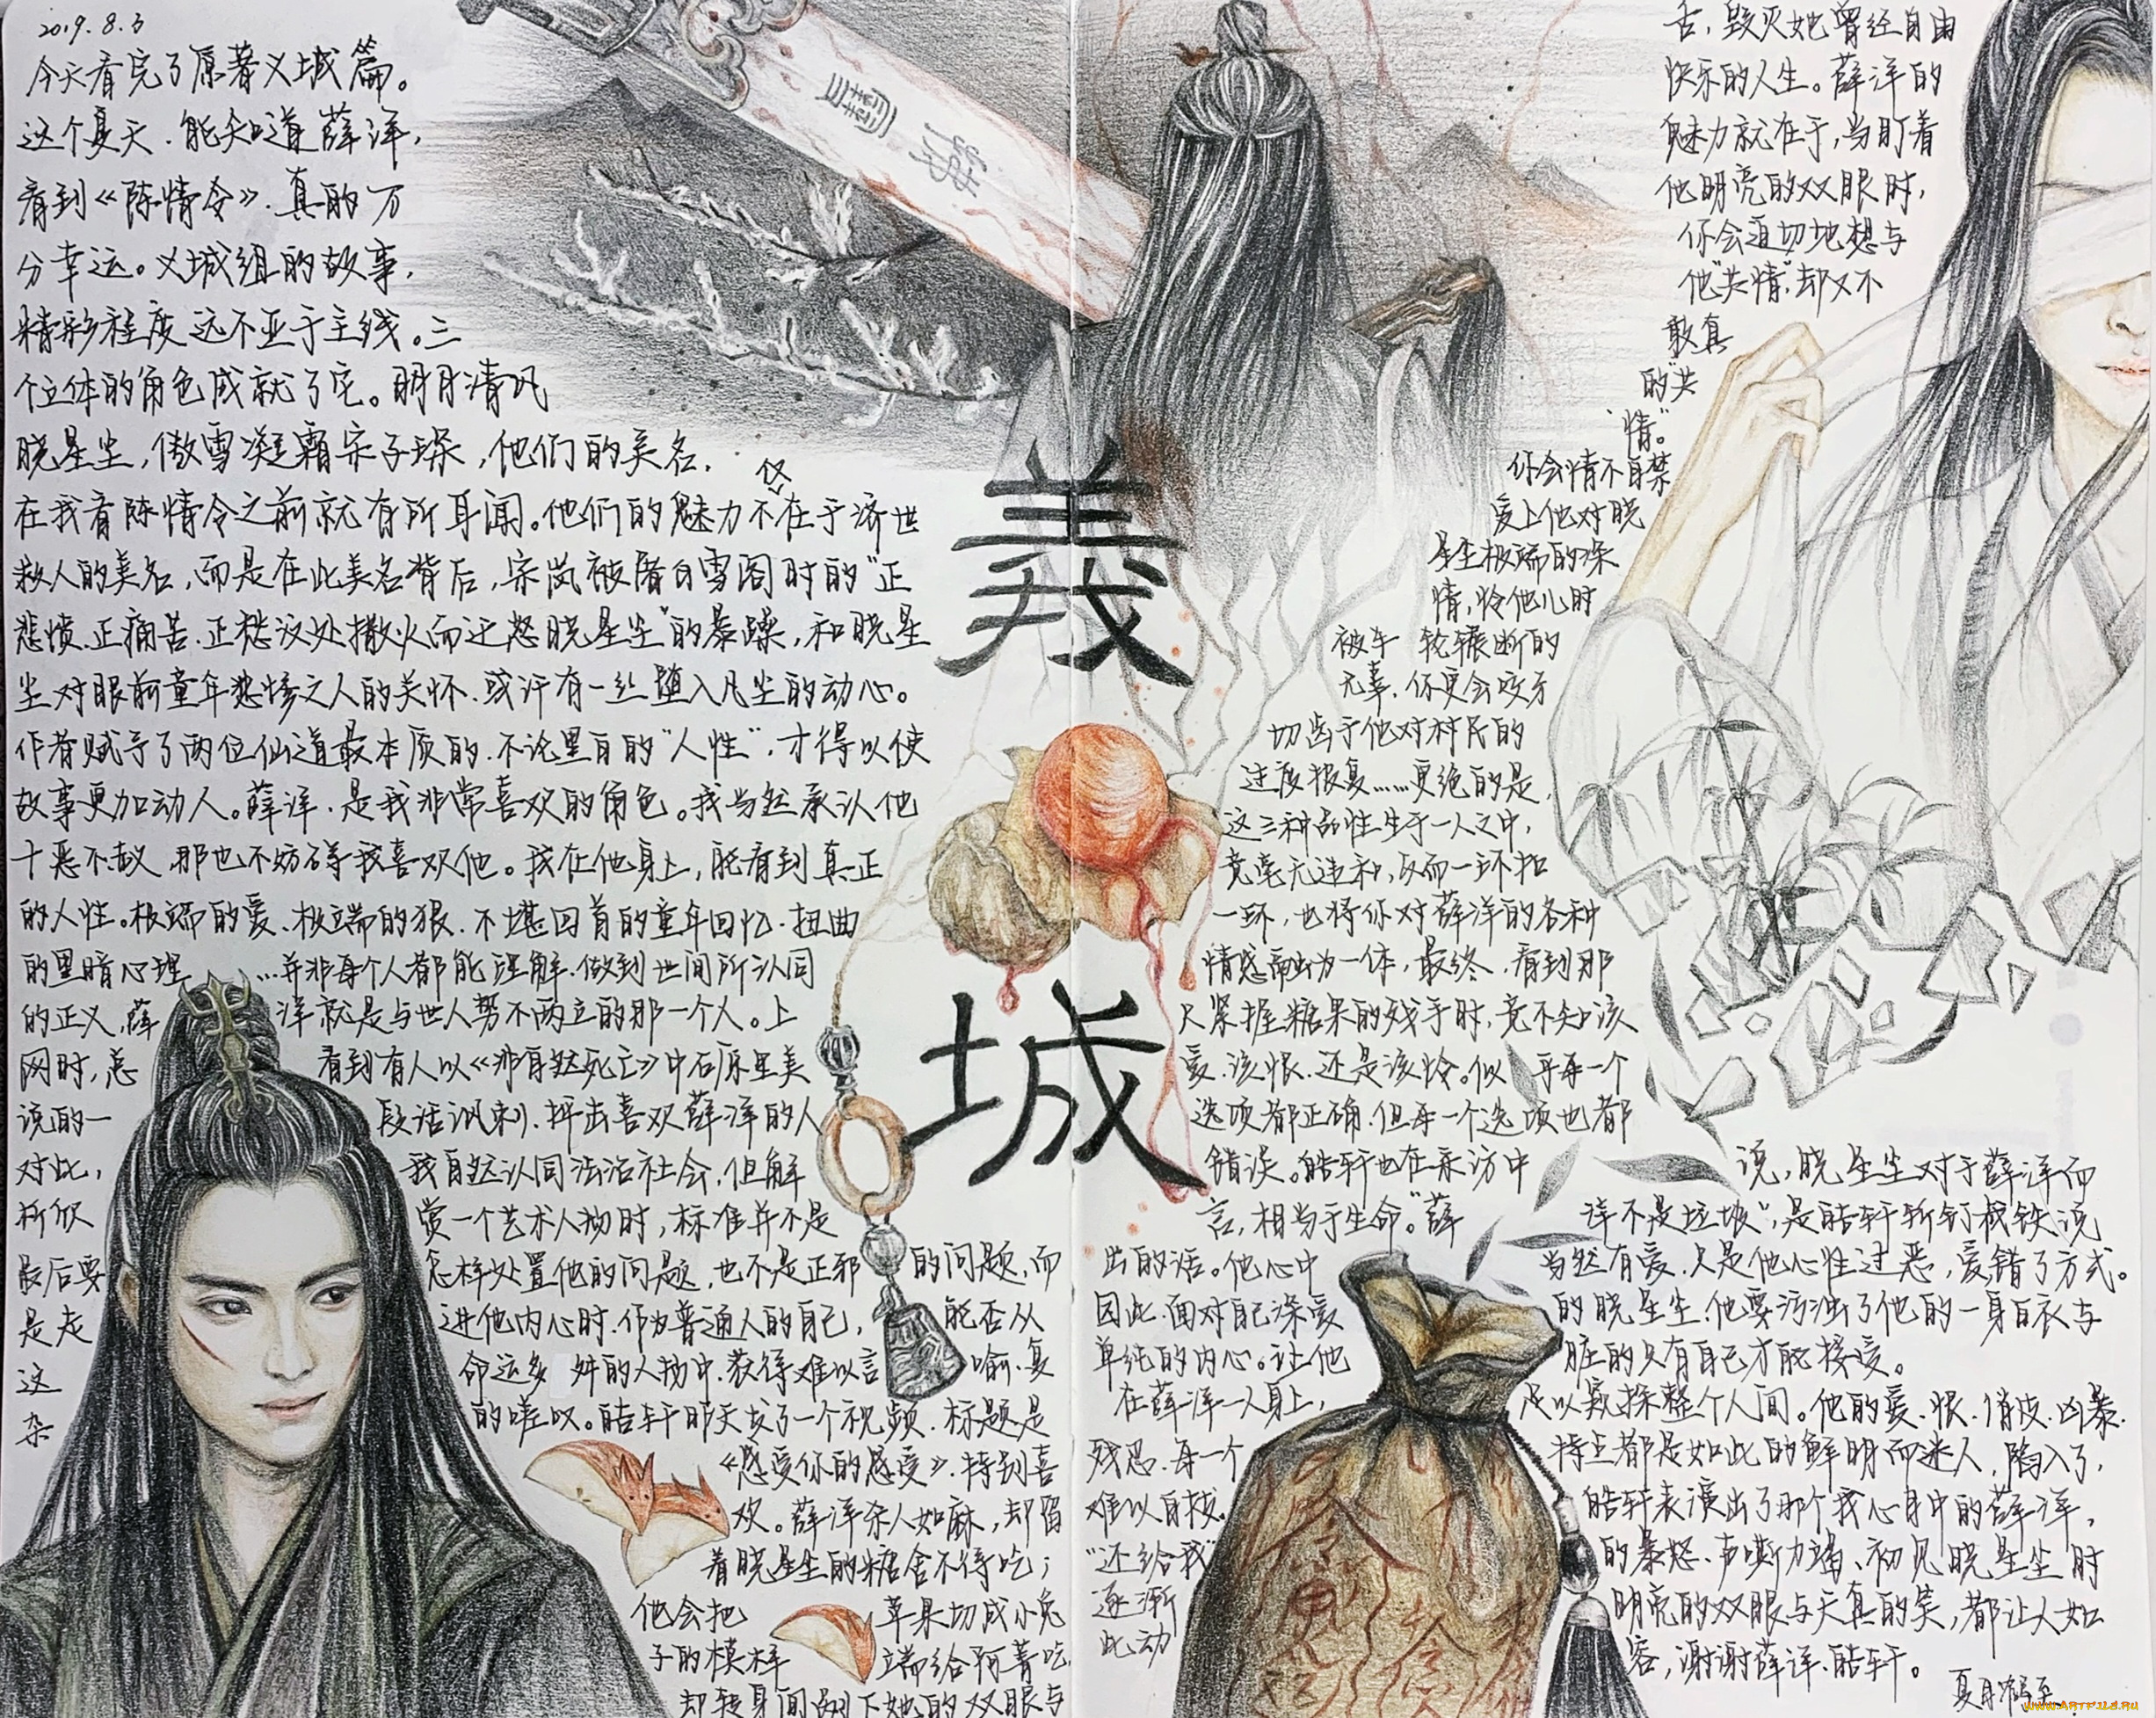 2019.8.3
今天看完了原著义城篇。
这个夏天.能知道薛洋,
看到《陈情令》.真的万
分幸运。义城组的故事,
精彩程度远不亚于主线。三
个立体的角色成就了它。明月清风
晓星尘,傲雪凌霜宋子琛,他们的美名.
在我看陈情令之前就有所耳闻。他们的魅力不仅在于济世
救人的美名,而是在此美名背后,宋岚被屠白雪阁时的“正
悲愤.正痛苦.正愁没处撒火而迁怒晓星尘”的暴躁,和晓星
尘对眼前童年悲惨之人的关怀.或许有一丝堕入凡尘的动心。
作者赋予了两位仙道最本质的.不论黑白的“人性”,才得以使
故事更加动人。薛洋.是我非常喜欢的角色。我当然承认他
十恶不赦.那也不妨碍我喜欢他。我在他身上,能看到真正
的人性。极端的爱、极端的狠、不堪回首的童年回忆.扭曲
的黑暗心理……并非每个人都能理解.做到世间所认同
的正义,薛洋就是与世人势不两立的那一个人。上
网时,总看到有人以《非自然死亡》中石原里美
说的一段话讽刺、抨击喜欢薛洋的人
对此,我自然认同法治社会,但解
析欣赏一个艺术人物时,标准并不是
最后要怎样处置他的问题,也不是正邪的问题,而
是走进他内心时.作为普通人的自己,能否从
这命运多舛的人物中.获得难以言喻.复
杂的嗟叹。皓轩昨天发了一个视频.标题是
《感受你的感受》.特别喜
欢。薛洋杀人如麻,却留
着晓星尘的糖舍不得吃;
他会把苹果切成小兔
子的模样端给阿菁吃,
却转身间剐下她的双眼与
霜降
義
城
舌,毁灭她曾经自由
快乐的人生。薛洋的
魅力就在于,当盯着
他明亮的双眼时,
你会迫切地想与
他“共情”,却又不
敢真
的“共
情”。
你会情不自禁
爱上他对晓
星尘极端的深
情,怜他儿时
被车轮辗断的
无辜.你更会咬牙
切齿于他对村民的
过度报复……更绝的是,
这三种品性生于一人之中,
竟毫无违和,反而一环扣
一环,也将你对薛洋的各种
情感融为一体,最终.看到那
只紧握糖果的残手时,竟不知该
爱.该恨.还是该怜。似乎每一个
选项都正确.但每一个选项也都
错误。皓轩也在采访中说,晓星尘对于薛洋而
言,相当于生命。“薛洋不是垃圾”,是皓轩斩钉截铁说
出的话。他心中当然有爱.只是他心性过恶,爱错了方式。
因此.面对自己深爱的晓星尘.他要污浊了他的一身白衣与
单纯的内心。让他脏的只有自己才能接受。
在薛洋一人身上,足以窥探整个人间。他的爱、恨、俏皮、凶暴.
残忍.每一个特点都是如此的鲜明而迷人,陷入了,
难以自拔.皓轩表演出了那个我心身中的薛洋,
“还给我”的暴怒、声嘶力竭、初见晓星尘时
逐渐明亮的双眼与天真的笑,都让人如
此动容,谢谢薛洋、皓轩。
WWW.ARTFILE.RU